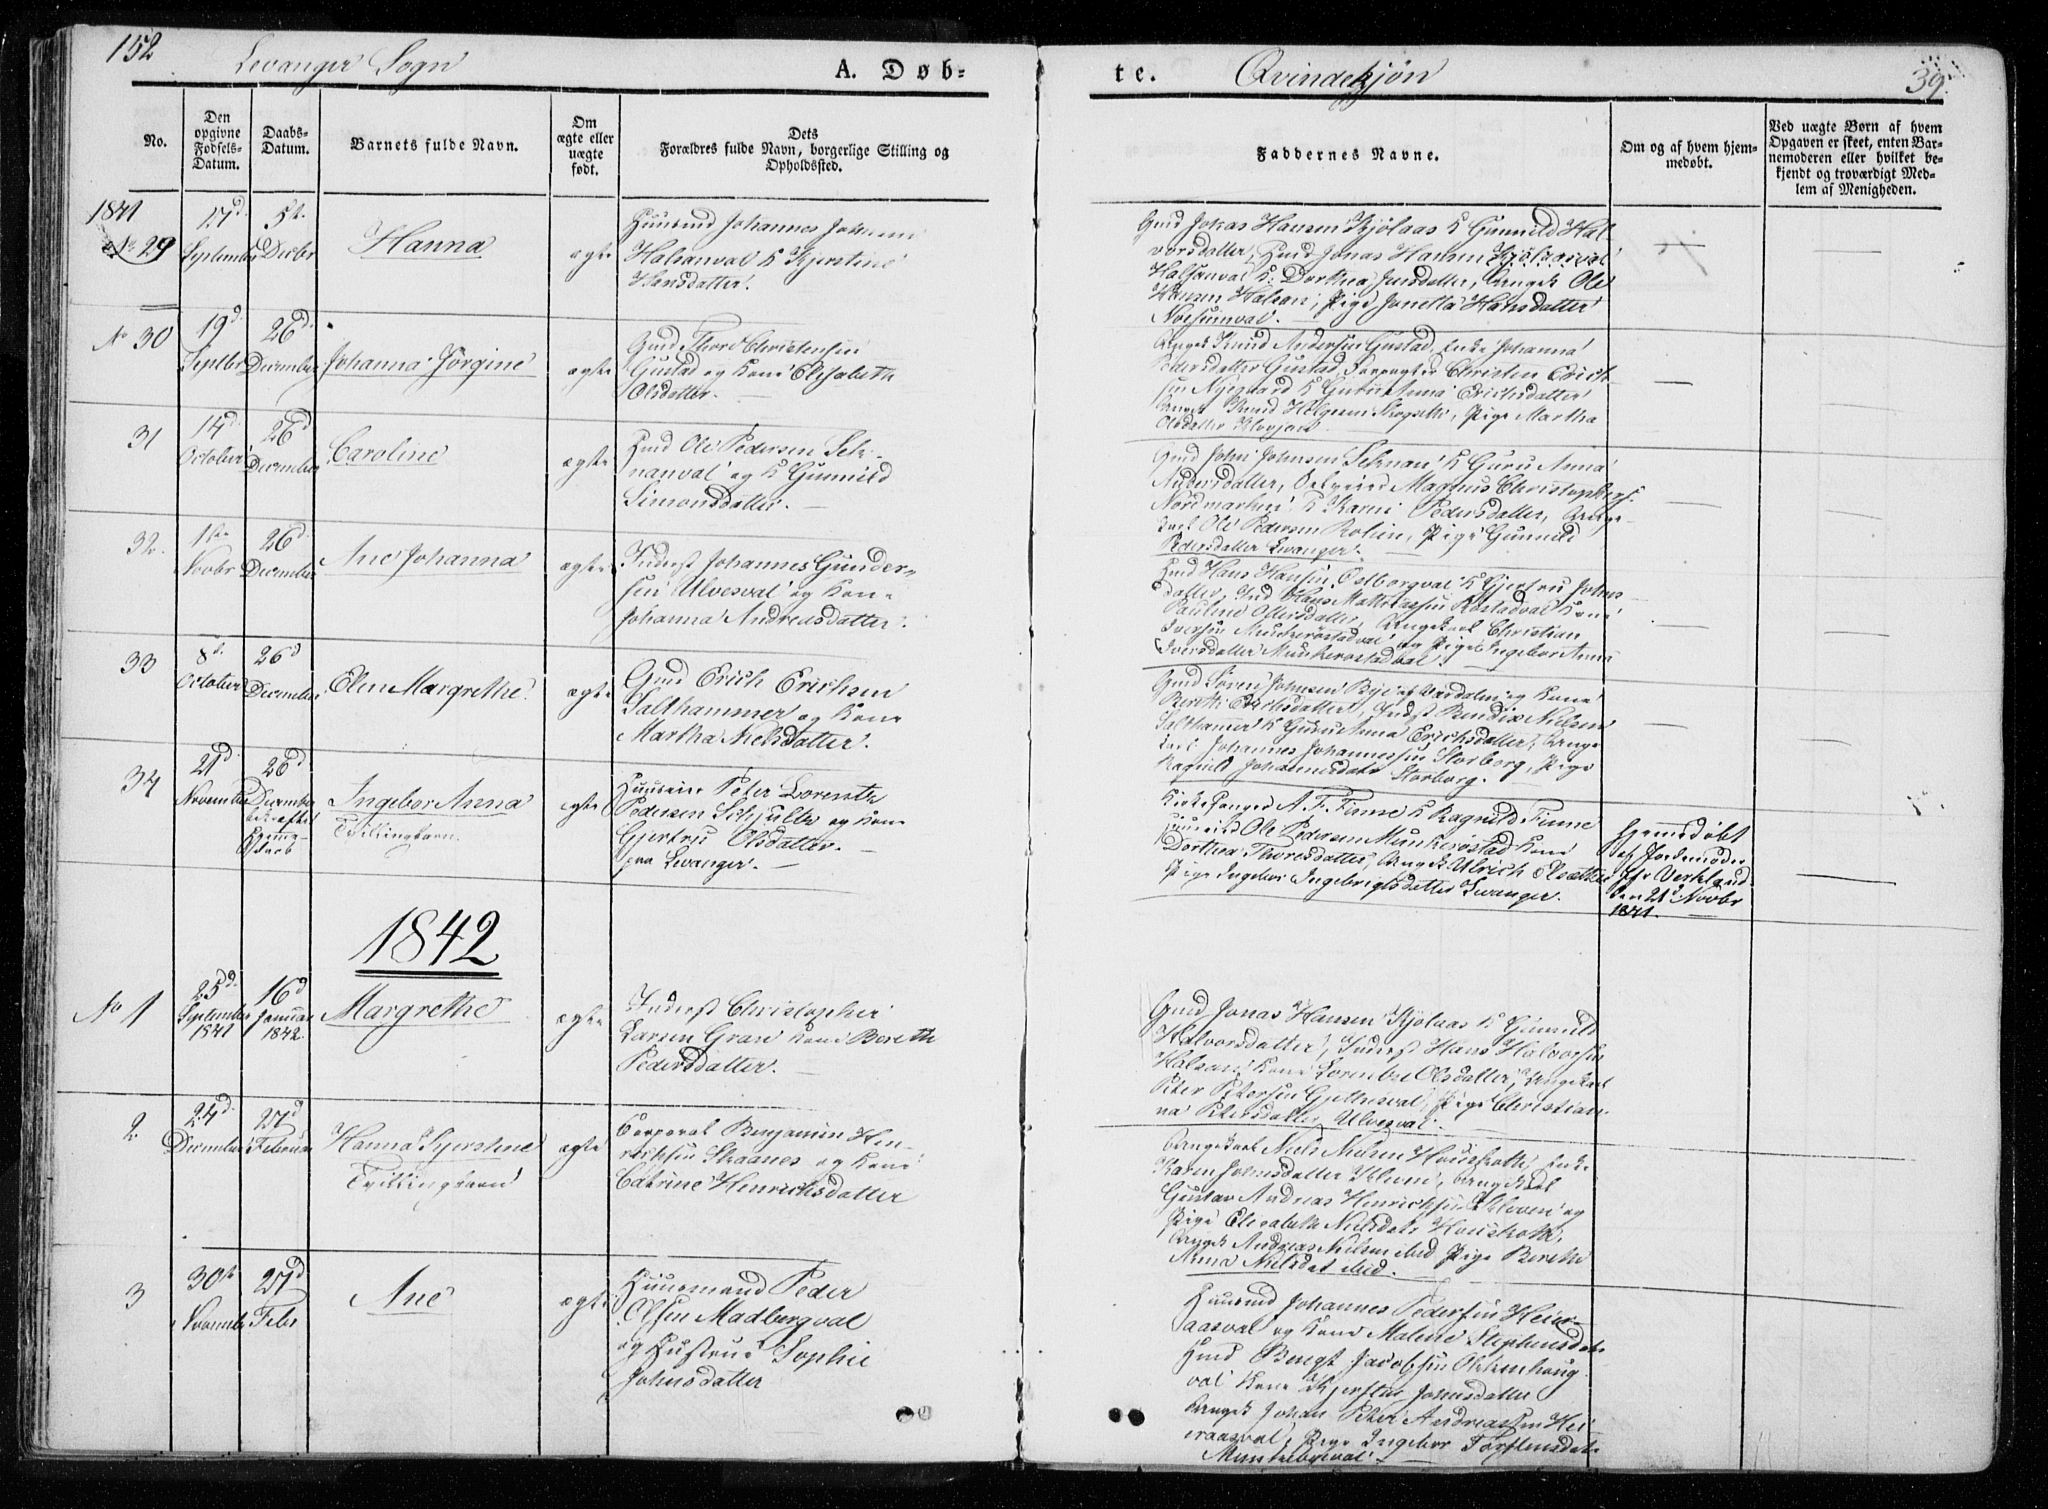 152
Levanger Sogn
A. Døb-
te.
Qvindekjøn
39.
No.
Den opgivne Fødsels-Datum.
Daabs-Datum.
Barnets fulde Navn.
Om ægte eller uægte født.
Dets Forældres fulde Navn, borgerlige Stilling og Opholdssted.
Faddernes Navne.
Om og af hvem hjem-medøbt.
Ved uægte Børn af hvem Opgaven er skeet, enten Bar-nemoderen eller hvilket be-kjendt og troværdigt Med-lem af Menigheden.
1841
No 29
17d September
5te Decbr
Hanna
ægte
Huusmd Johannes
Halsanval K Kjerstine
Hansdatter.
Gmd Jonas Hansen Kjølaas K Gunnild Hal-
vorsdatter, Hmd Jonas Hansen
Halsanval K. Dorthea Jensdatter, Ungk Ole
Hansen Halsan, Pige Jonetta Hansdatter
No 30
19d Septbr
26d December
Johanna Jørgine
ægte
Gmd Thord Christensen
Gustad og Kone Elisabeth
Olsdatter.
Ungk Knud Andersen Gustad, Enke Johanna
Pedersdatter Gustad, Forpagter Christen Erich-
sen Nygaard K Guru Anna Erichsdatter
Ungk Knud Helgesen Pige Martha
Olsdatter
31
14d October
26d December
Caroline
ægte
Hmd Ole Pedersen Sek-
nanval og K Gunnild
Simonsdatter.
Gmd John Johnsen Seknan K Guru Anna
Andersdatter, Magnus Christophers.
Nordmarken K Karen Pedersdatter, Unge-
karl Ole Pedersen Rolien, Pige Gunnild
Pedersdatter Levanger.
32.
1ste Novbr
26d December
Ane Johanna
ægte
Inderst Johannes Gunder-
sen Ulvesval og Kone
Johanna Andreasdatter.
Hmd Hans Hansen Østborgval K Gjertru Johns-
datter, Ind Hans Mathiassen Røstadval Kone
Pauline Ollersdatter, Ungekarl Christian
Iversen Munkerøstadval og Pige Ingebor Anna
Iversdatter Munkerøstadval
33
8d. October
26d December
Elen Margrethe
ægte
Gmd Erich Erichsen
Salthammer og Kone
Martha Nielsdatter.
Gmd Søren Johnsen Bye af Værdalen og Kone
Berethe Erichsdatter, Inderst Bendix Nielsen
Salthamer K Guru Anna Erichsdatter, Unge
karl Johannes Johannessen Storborg, Pige
Ragnild Johannesdatt Storborg.
34
21d November
26d December
bekræftet
Hjemme-
daab
Ingebor Anna
Tvillingbarn.
ægte
Huuseier Peter Lorents
Pedersen Schjulle og Kone
Gjertru Olsdatter.
paa Levanger.
Kirkesanger A. F. Finne K Ragnild Finne
Huusmd Ole Pedersen Munkerøstad Kone
Dorthea Thoresdatter, Ungk Ulrich
Pige Ingebor Ingebrigtsdatter Levanger.
Hjemmedøbt
af Jordemoder
den 21d Novbr
1841.
1842
No 1
25d September 1841
16d Januar 1842.
Margrethe
ægte
Inderst Christopher
Larsen Grave Kone Bereth
Pedersdatter.
Gmd Jonas Hansen Kjølaas K Gunnild
Halvorsdatter, Inderst Hans Halvorsen
Halsan Kone Lorentse Olsdatter, Ungekarl
Peter Petersen Pige Christian-
na Petersdatter Ulvesval.
2
24d December
27d Februar
Hanna Kjerstine
Tvillingbarn
ægte
Corporal Benjamin Hen-
richsen Skaanes og Kone
Cathrine Henrichsdatter
Ungekarl Niels Nielsen Houskotte, Enke
Karen Johnsdatter Kleven, Ungekarl
Gustav Andreas Henrichsen Kleven og
Pige Elisabeth Nielsdatr Houskott,
Ungk Andreas Nielsen ibid Pige Berethe
Anna Nielsdat ibid.
3
30te Novembr
27d Febr
Ane
ægte
Huusmand Peder
Olsen Madbergval
og Hustrue Sophie
Johnsdatter
Huusmd Johannes Pedersen Heir-
aasval og Kone Malene Stephensdat-
Hmd Bengt Jacobsen Okkenhoug
val Kone Kjersten Johnsdatter
Ungk Johan Peter Andreassen Hei-
raasval, Pige Ingebor Torstensdat-